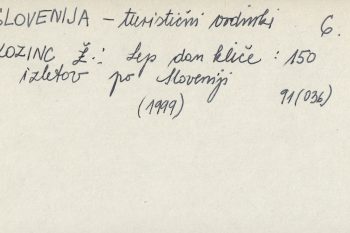 SLOVENIJA - turistični vodniki 6.
KOZINC Ž.: Lep dan kliče : 150
izletov po Sloveniji
(1999) 91(036)